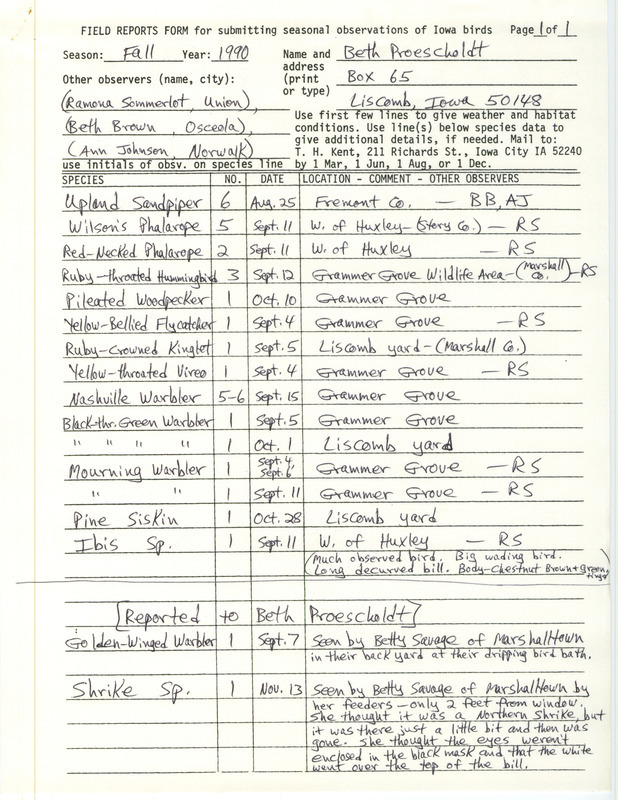 FIELD REPORTS FORM for submitting seasonal observations of Iowa birds Page 1 of 1
Season: Fall Year: 1990 Name and Beth Proescholdt
address
Other observers (name, city): (print Box 65
or type)
(Ramona Sommerlot, Union), Liscomb, Iowa 50148
(Beth Brown, Osceola), Use first few lines to give weather and habitat
conditions. Use line(s) below species data to
(Ann Johnson, Norwalk) give additional details, if needed. Mail to:
T. H. Kent, 211 Richards St., Iowa City IA 52240
use initials of obsv. on species line by 1 Mar, 1 Jun, 1 Aug, or 1 Dec.
SPECIES NO. DATE LOCATION - COMMENT - OTHER OBSERVERS
Upland Sandpiper 6 Aug. 25 Fremont Co. — BB, AJ
Wilson's Phalarope 5 Sept. 11 W. of Huxley - (Story Co.) — RS
Red-Necked Phalarope 2 Sept. 11 W. of Huxley — RS
Ruby-throated Hummingbird 3 Sept. 12 Grammer Grove Wildlife Area - (Marshall Co.) - RS
Pileated Woodpecker 1 Oct. 10 Grammer Grove
Yellow-Bellied Flycatcher 1 Sept. 4 Grammer Grove — RS
Ruby-Crowned Kinglet 1 Sept. 5 Liscomb yard - (Marshall Co.)
Yellow-throated Vireo 1 Sept. 4 Grammer Grove — RS
Nashville Warbler 5-6 Sept. 15 Grammer Grove
Black-thr. Green Warbler 1 Sept. 5 Grammer Grove
" " " " 1 Oct. 1 Liscomb yard
Mourning Warbler 1 Sept. 4 Sept. 6 Grammer Grove — RS
" " 1 Sept. 11 Grammer Grove — RS
Pine Siskin 1 Oct. 28 Liscomb yard
Ibis Sp. 1 Sept. 11 W. of Huxley — RS
(Much observed bird. Big wading bird.
Long decurved bill. Body-Chestnut Brown + green
[Reported to Beth Proescholdt]
Golden-Winged Warbler 1 Sept. 7 Seen by Betty Savage of Marshalltown
in their back yard at their dripping bird bath.
Shrike Sp. 1 Nov. 13 Seen by Betty Savage of Marshalltown by
her feeders - only 2 feet from window.
She thought it was a Northern Shrike, but
it was there just a little bit and then was
gone. She thought the eyes weren't
enclosed in the black mask and that the white
went over the top of the bill.